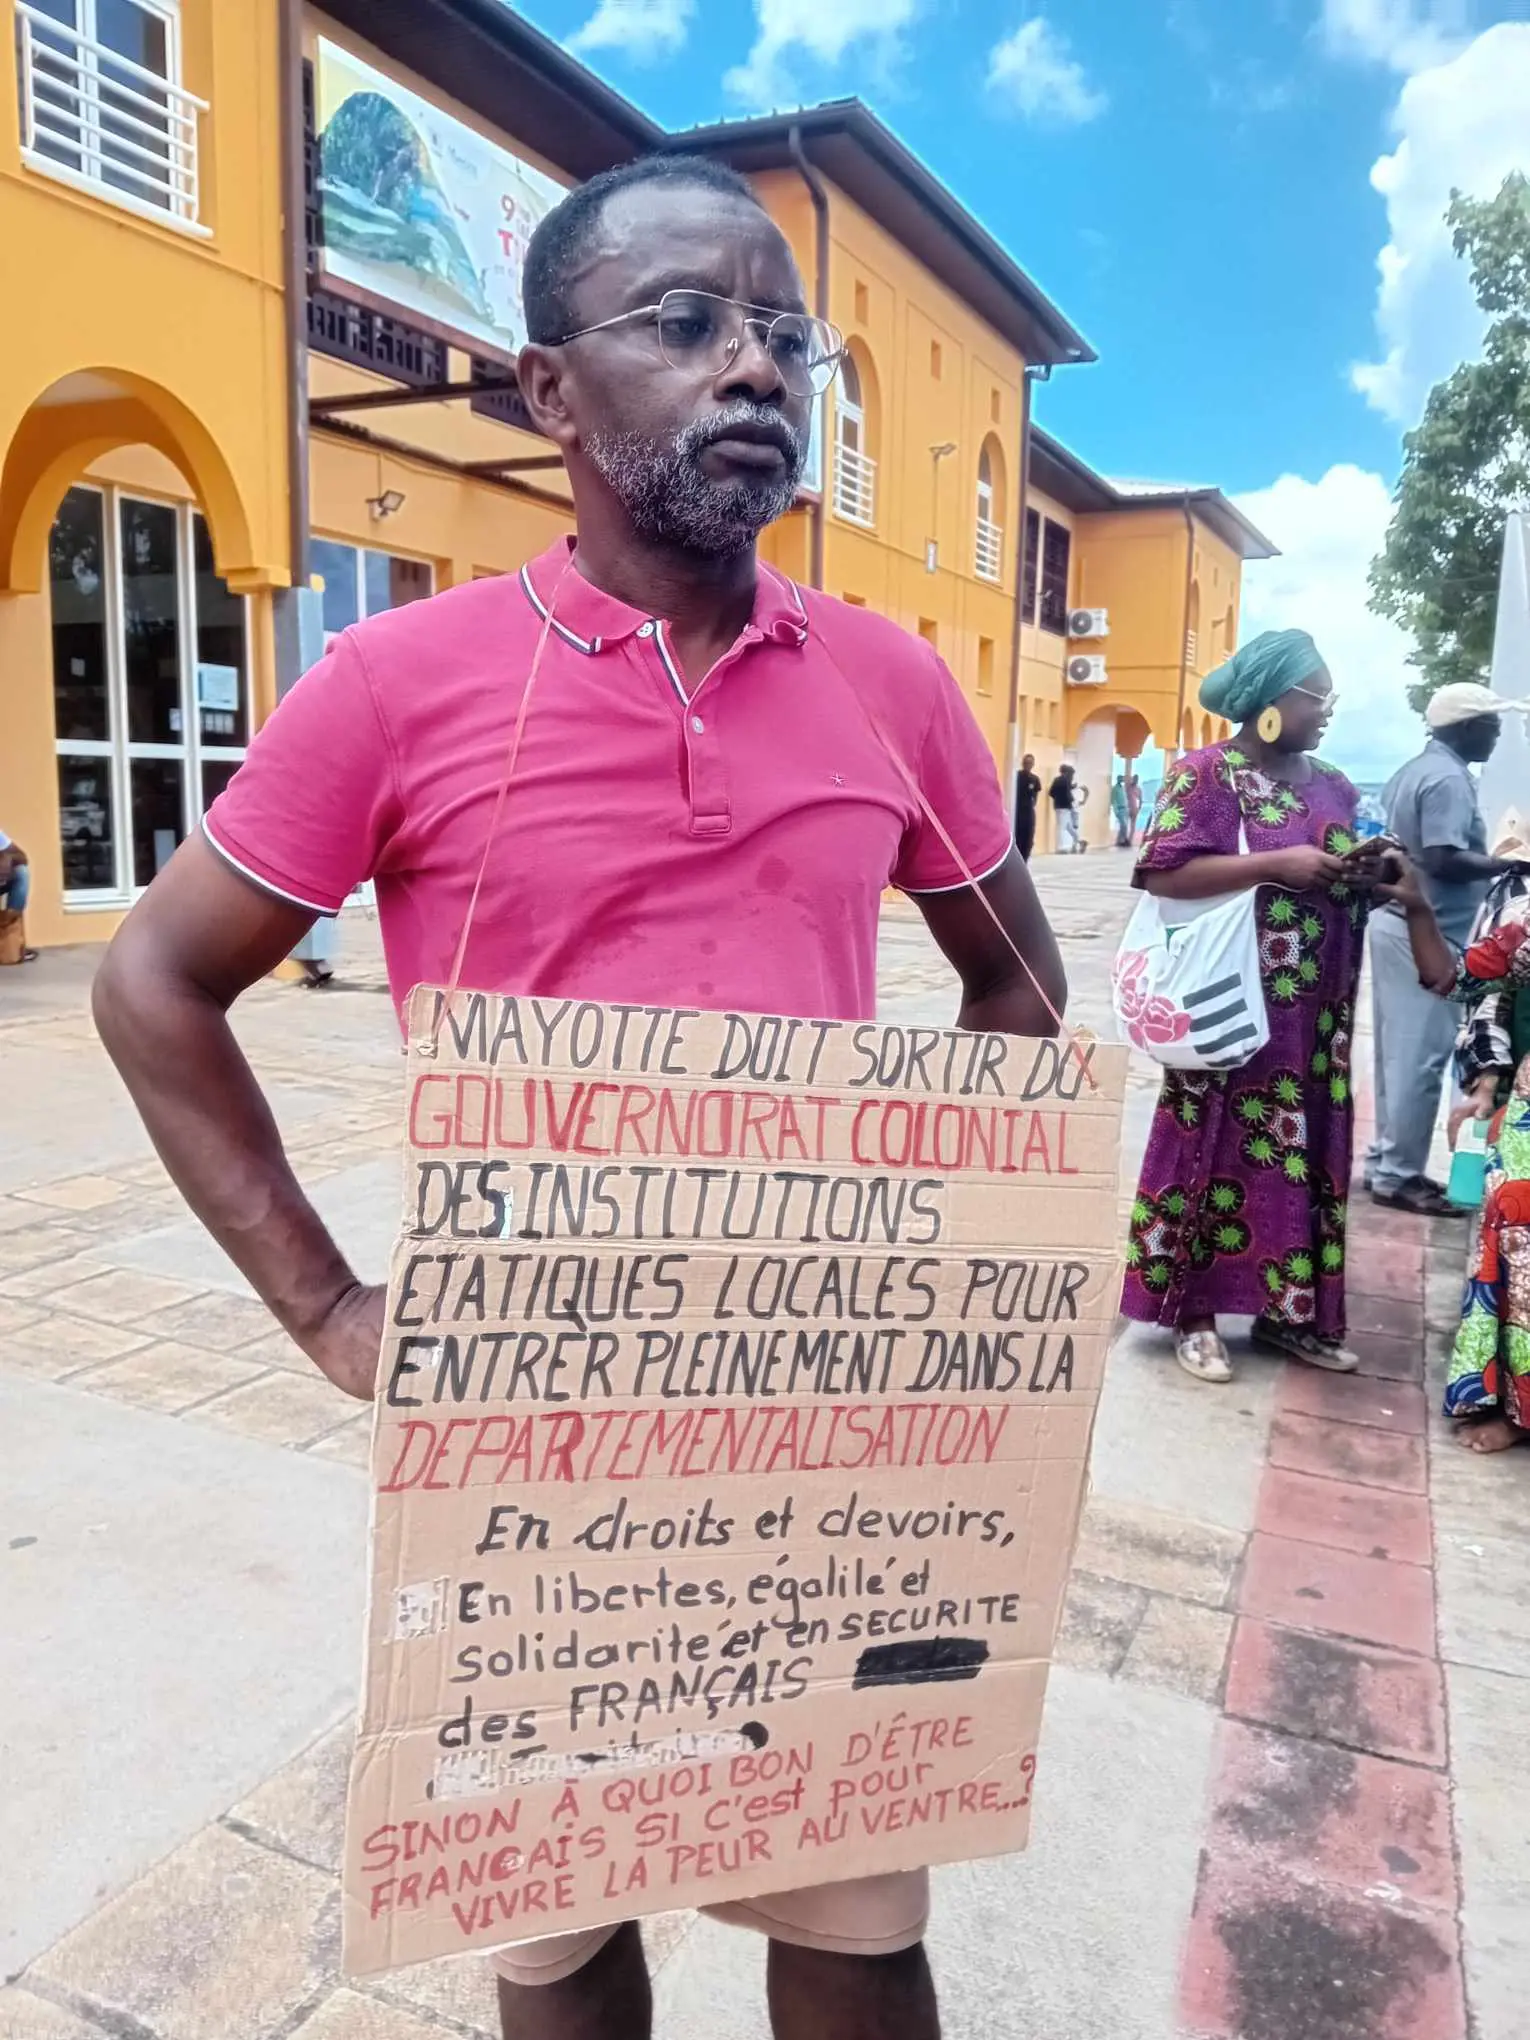 9
MAYOTTE DOIT SORTIR DU
GOUVERNORAT COLONIAL
DES INSTITUTIONS
ETATIQUES LOCALES POUR
ENTRER PLEINEMENT DANS LA
DEPARTEMENTALISATION
En droits et devoirs,
En libertes, égalité et
solidarité et en SECURITE
des FRANÇAIS
SINON À QUOI BON D'ÊTRE
FRANCAIS SI C'est POUR
VIVRE LA PEUR AU VENTRE...?